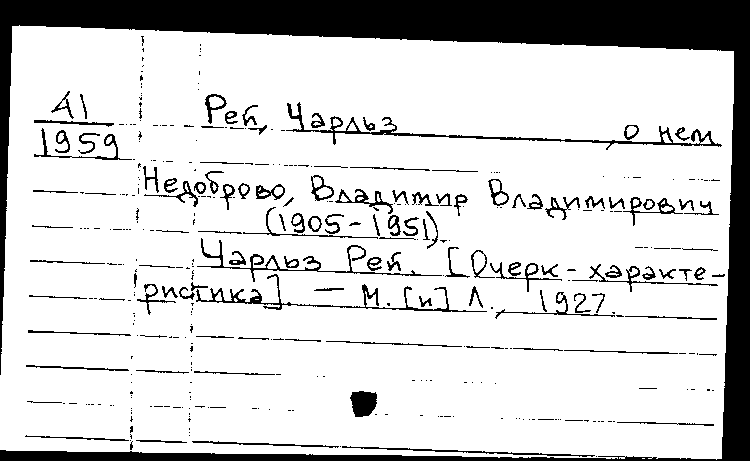 А1
1959
Рей, Чарльз , о нем
Недоброво, Владимир Владимирович
(1905-1951).
Чарльз Рей. [Очерк-характе-
ристика]. — М. [и] Л., 1927.